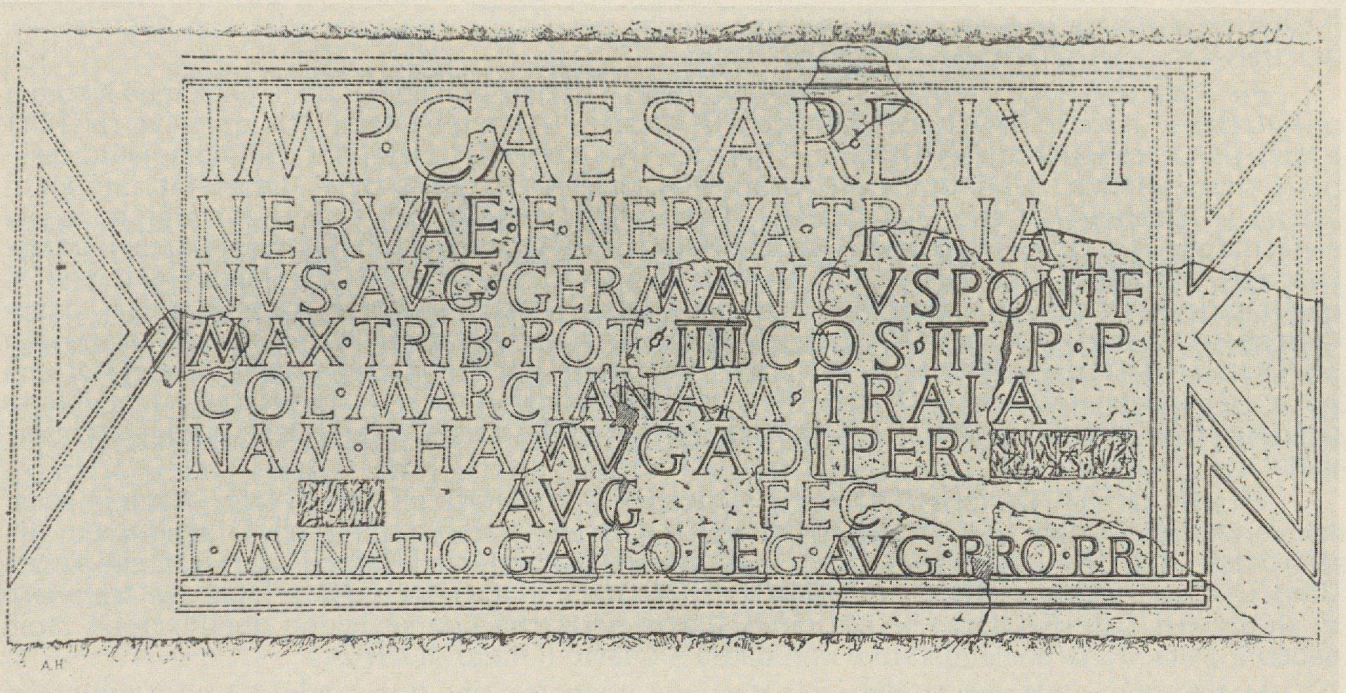 IMP·CAESAR DIVI
NERVAE F·NERVA·TRAIA
NVS·AVG·GERMANICVS PONTF
MAX·TRIB·POT·IIII COS·III P·P
COL·MARCIANAM·TRAIA
NAM·THAMVGADI PER
AVG FEC
L·MVNATIO·GALLO·LEG·AVG·PRO·PR
A.H